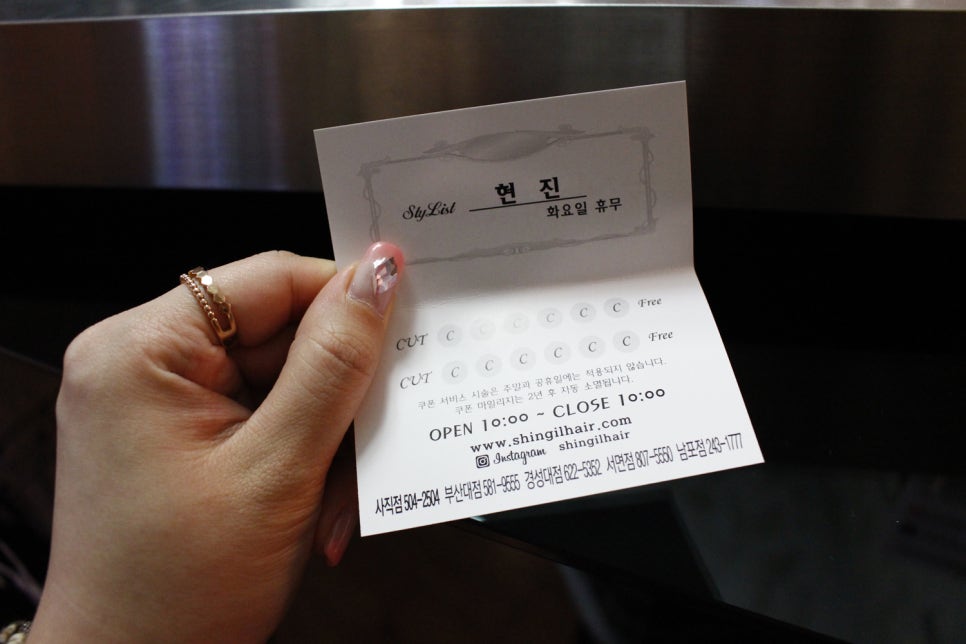 StyList 현 진
화요일 휴무
CUT C C C C C C Free
CUT C C C C C C Free
쿠폰 서비스 시술은 주말과 공휴일에는 적용되지 않습니다.
쿠폰 마일리지는 2년 후 자동 소멸됩니다.
OPEN 10:00 ~ CLOSE 10:00
www.shingilhair.com
Instagram shingilhair
사직점 504-2504 부산대점 581-9555 경성대점 622-5352 서면점 807-5550 남포점 243-1777